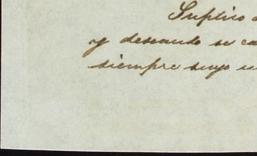 Suplico
y deseando se
siempre suyo